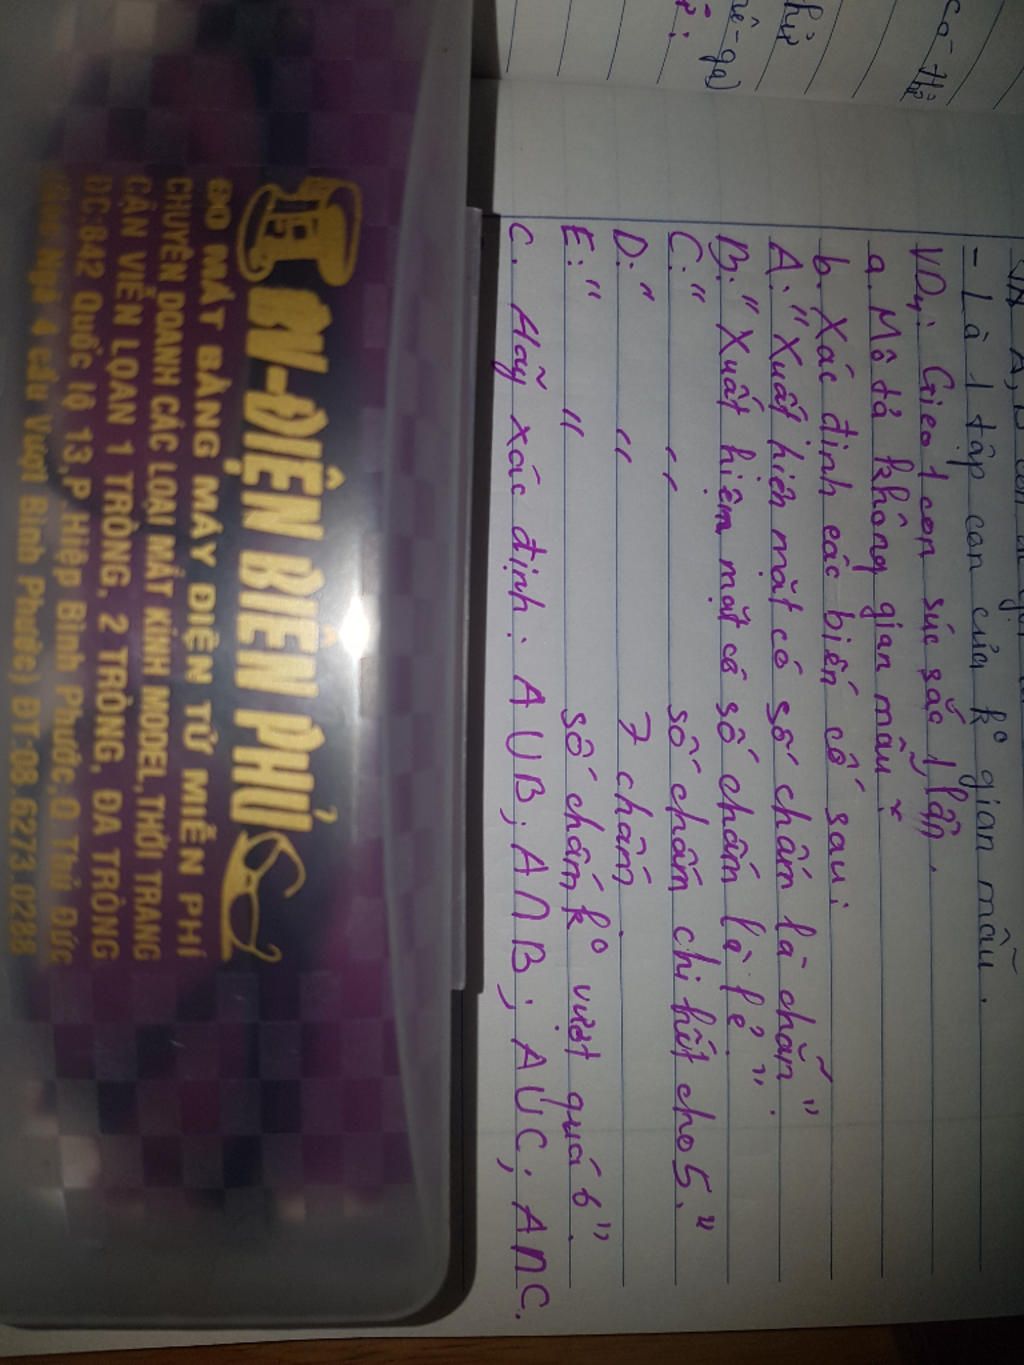 có thể
thử
ê-ga
- Là 1 tập con của k° gian mẫu.
VD4: Gieo 1 con súc sắc 1 lần.
a. Mô tả không gian mẫu
b. Xác định các biến cố sau:
A: " Xuất hiện mặt có số chấm là chẵn"
B: " Xuất hiện mặt có số chấm là lẻ ".
C: " " số chấm chi hết cho 5."
D: " " 7 chấm.
E: " " số chấm k° vượt quá 6".
c. Hãy xác định: A U B; A ∩ B; A U C; A ∩ C.
N-ĐIỆN BIÊN PHỦ
ĐO MẮT BẰNG MÁY ĐIỆN TỬ MIỄN PHÍ
CHUYÊN DOANH CÁC LOẠI MẮT KÍNH MODEL, THỜI TRANG
CẬN VIỄN LOẠN 1 TRÒNG, 2 TRÒNG, ĐA TRÒNG
ĐC:842 Quốc lộ 13,P.Hiệp Bình Phước,Q Thủ Đức
Ngã 4 cầu Vượt Bình Phước) ĐT:08.6273 0288